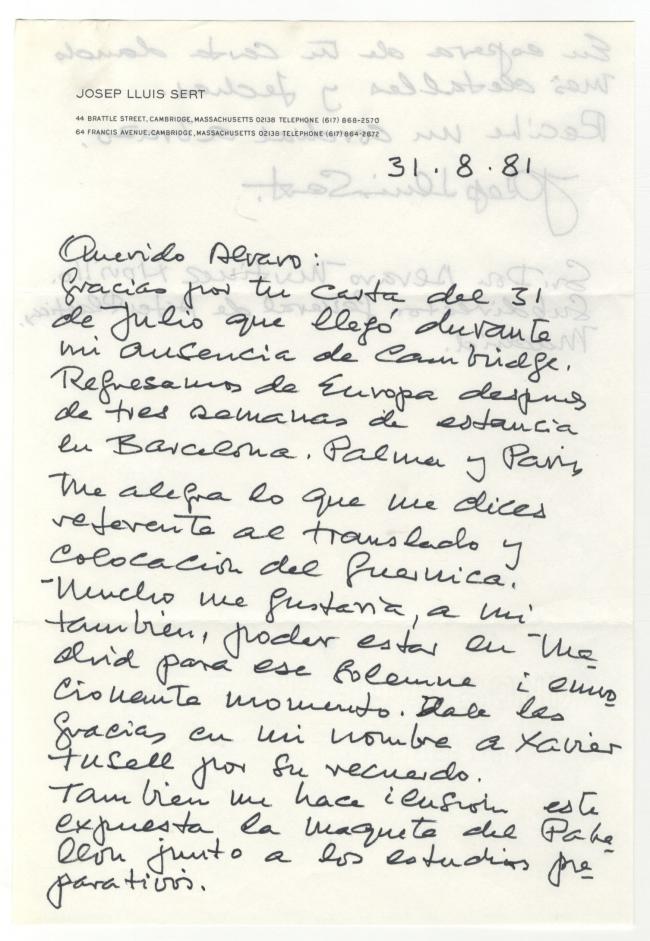 JOSEP LLUIS SERT
44 BRATTLE STREET, CAMBRIDGE, MASSACHUSETTS 02138 TELEPHONE (617) 868-2570
64 FRANCIS AVENUE, CAMBRIDGE, MASSACHUSETTS 02138 TELEPHONE (617) 864-2872
31.8.81
Querido Alvaro:
Gracias por tu carta del 31
de Julio que llegó durante
mi ausencia de Cambridge.
Regresamos de Europa despues
de tres semanas de estancia
en Barcelona. Palma y Paris,
Me alegra lo que me dices
referente al translado y
colocación del Guernica.
Mucho me gustaria, a mi
también, poder estar en Ma-
drid para ese solemne i emo
cionante momento. Dale las
gracias en mi nombre a Xavier
Tusell por su recuerdo.
Tambien me hace ilusión este
expuesta la maqueta del Pabe-
llon junto a los estudios pre-
parativos.